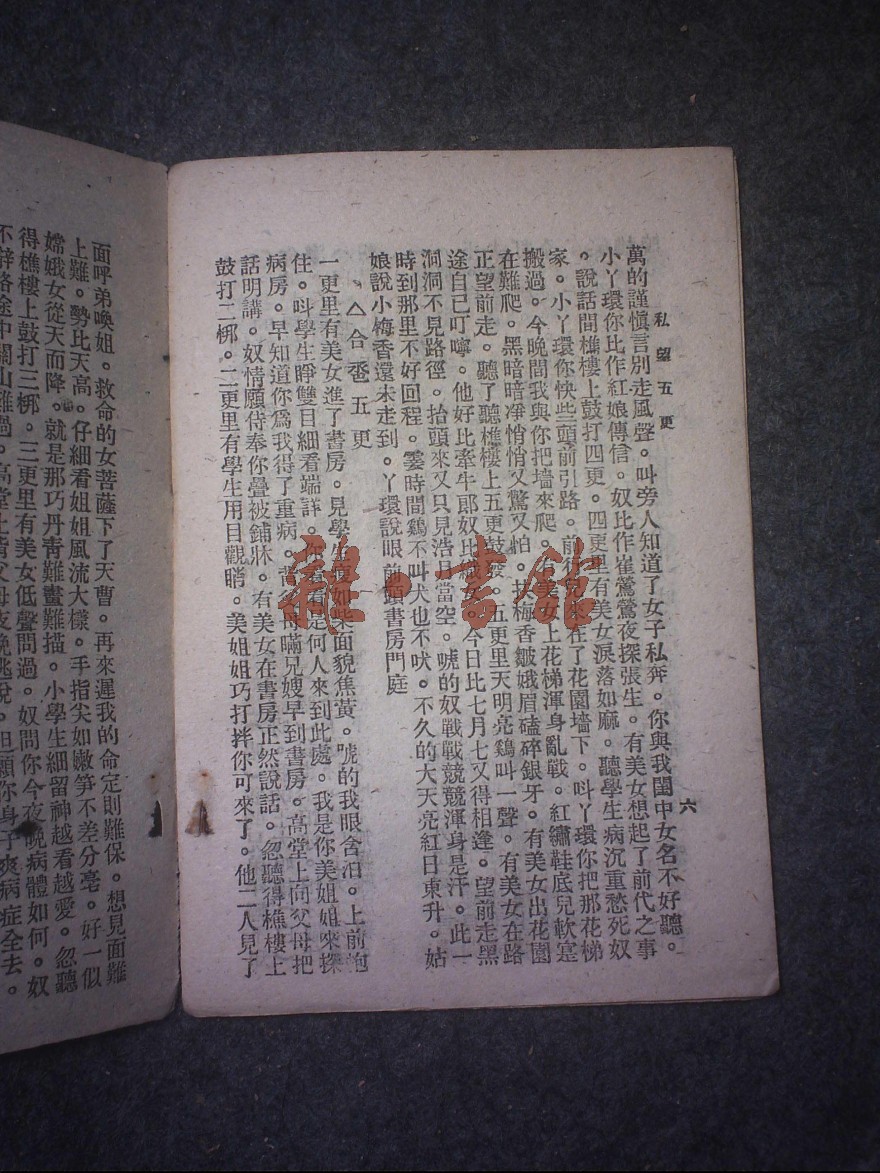 私望五更
六
萬的謹愼言別走風聲。叫旁人知道了女子私奔。你與我閨中女名不好聽。
小丫環你比作紅娘傳信。奴比作崔鶯鶯夜探張生。有美女想起了前代之事
。說話間樵樓上鼓打四更。四更里有美女淚落如麻。聽學生病沉重愁死奴
家。小丫環你快些頭前引路。前行兒來在了花園墻下。叫丫環你把那花梯
搬過。今晚間我與你把墻來爬。有美女上花梯渾身亂戰。紅繡鞋底兒軟
在難爬。黑暗暗凈悄悄又驚又怕。扶梅香皺娥眉磕碎銀牙。有美女出花園
正望前走。聽了聽樵樓上五更鼓發。五更里天明亮鷄叫一聲。有美女在路
途自己叮嚀。他好比牽牛郎奴比織女。今日比七月七又得相逢。望前走黑
洞洞不見路徑。抬頭來又只見浩月當空。唬的奴戰戰競競渾身是汗。此一
時到那里不好回程。霎時間鷄不叫犬也不吠。不久的大天亮紅日東升。姑
娘說小梅香還未走到。丫環說眼前頭書房門庭
△合卺五更
一更里有美女進了書房。見學生瘦如柴面貌焦黃。唬的我眼含泪。上前抱
住。叫學生睜雙目細看端詳。你看看是何人來到此處。我是你美姐姐來探
病房。早知道你爲我得了重病。背爹母瞞兄嫂早到書房。高堂上向父母把
話明講。奴情願侍奉你疊被鋪牀。有美女在書房正然說話。忽聽得樵樓上
鼓打二梆。二更里有學生用目觀睄。美姐姐巧打拌你可來了。他二人見了
面呼弟喚姐。救命的女菩薩下了天曹。再來遲我的命定則難保。想見面難
上難。勢比天高。仔細看姐姐風流大樣。手指尖如嫩笋不差分毫。好一似
嫦娥女從天而降。就是那巧丹靑難畫難描。小學生細留神越看越愛。忽聽
得樵樓上鼓打三梆。三更里有美女低聲問過。奴問你今夜晚病體如何。奴
不辞路途中關山難過。高堂上背父母夜晚逃脫。但願你身子爽病症全去。
雜·書館